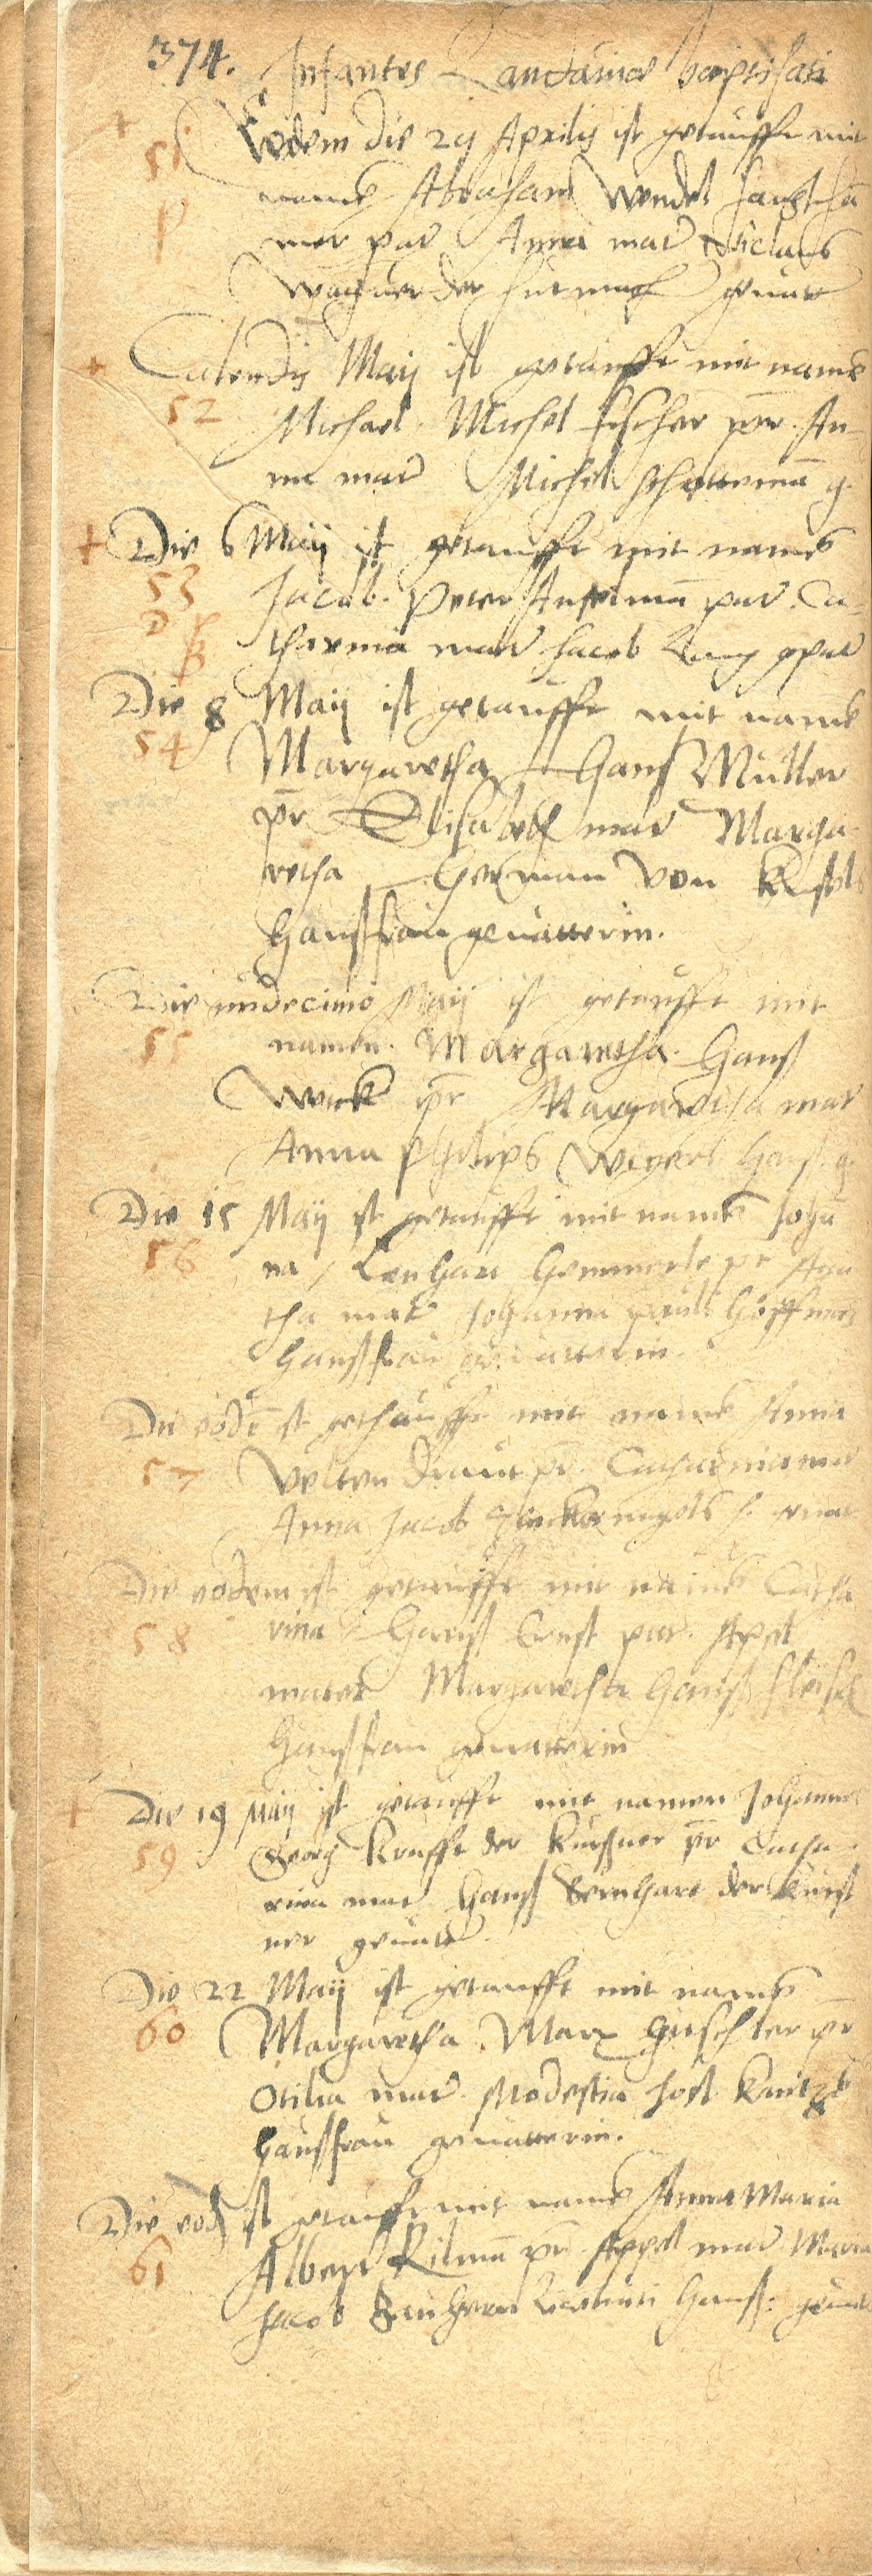 374. Infantes Landaviae baptisati
Eodem die 29 Aprilis ist getaufft mit
51
namē Abraham Wendel
p
mer par Anna mar Niclaus
Wagner der gevat
Calendis Maij ist getaufft mit namē
52
Michael. Michel Fischer par. An-
na mar Michel g.
Die 6 Maij ist getaufft mit namē
53
Jacob. Peter par. Ca-
tharina mar Jacob gvat
Die 8 Maij ist getaufft mit namē
54
Margaretha Hans Müller
pr Elisabeth mar Marga-
retha Herman von
Hausfrau gevatterin.
Die undecimo Maij ist getaufft mit
55
namen. Margaretha. Hans
Werk pr Margaretha mar
Anna Philips Weyers Hausf. g.
Die 15 Maij ist getaufft mit namē Joha
56
na / Lenhart Hemmerle pr Aga
tha mat Johanna Hoffmans
Hausfrau gevatterin.
Die eodē ist gethaufft mit namē Anna
57
Velten Draut pr. Catharnia mar
Anna Jacob h. gevat
Die eodem ist getaufft mit namē Catha
58
rina Hans Ernst par. Apel
mater Margaretha Hans
Hausfrau gevatterin
Die 19 Maij ist getaufft mit namen Johannes
59
Georg Krafft der Kürsner pr Catha-
rina mar Hans Bernhart der Kürs
ner gevatt.
Die 22 Maij ist getaufft mit namē
60
Margaretha. Marx pr
Otilia mar. Modestia Jost
Hausfrau gevatterin.
Die eod ist getaufft mit namē Anna Maria
61
Albert pr. Appel mar Maria
Jacob Hausf: gevat